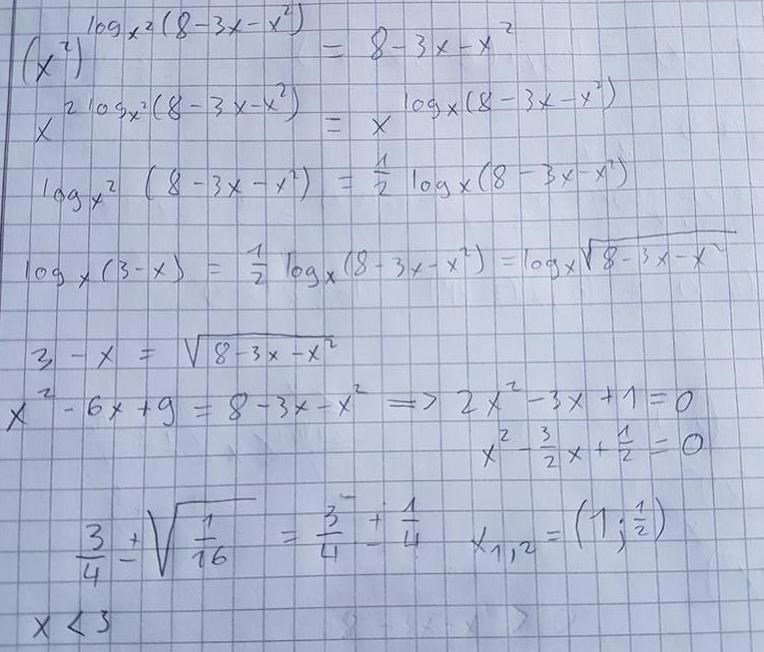 (x²)^(log_x²(8-3x-x²)) = 8-3x-x²
x^(2 log_x²(8-3x-x²)) = x^(log_x(8-3x-x²))
log_x² (8-3x-x²) = 1/2 log_x(8-3x-x²)
log_x(3-x) = 1/2 log_x(8-3x-x²) = log_x√(8-3x-x²)
3 - x = √(8-3x-x²)
x² - 6x + 9 = 8-3x-x² => 2x² - 3x + 1 = 0
x² - 3/2 x + 1/2 = 0
3/4 ± √(1/16) = 3/4 ± 1/4 x₁,₂ = (1; 1/2)
x < 3